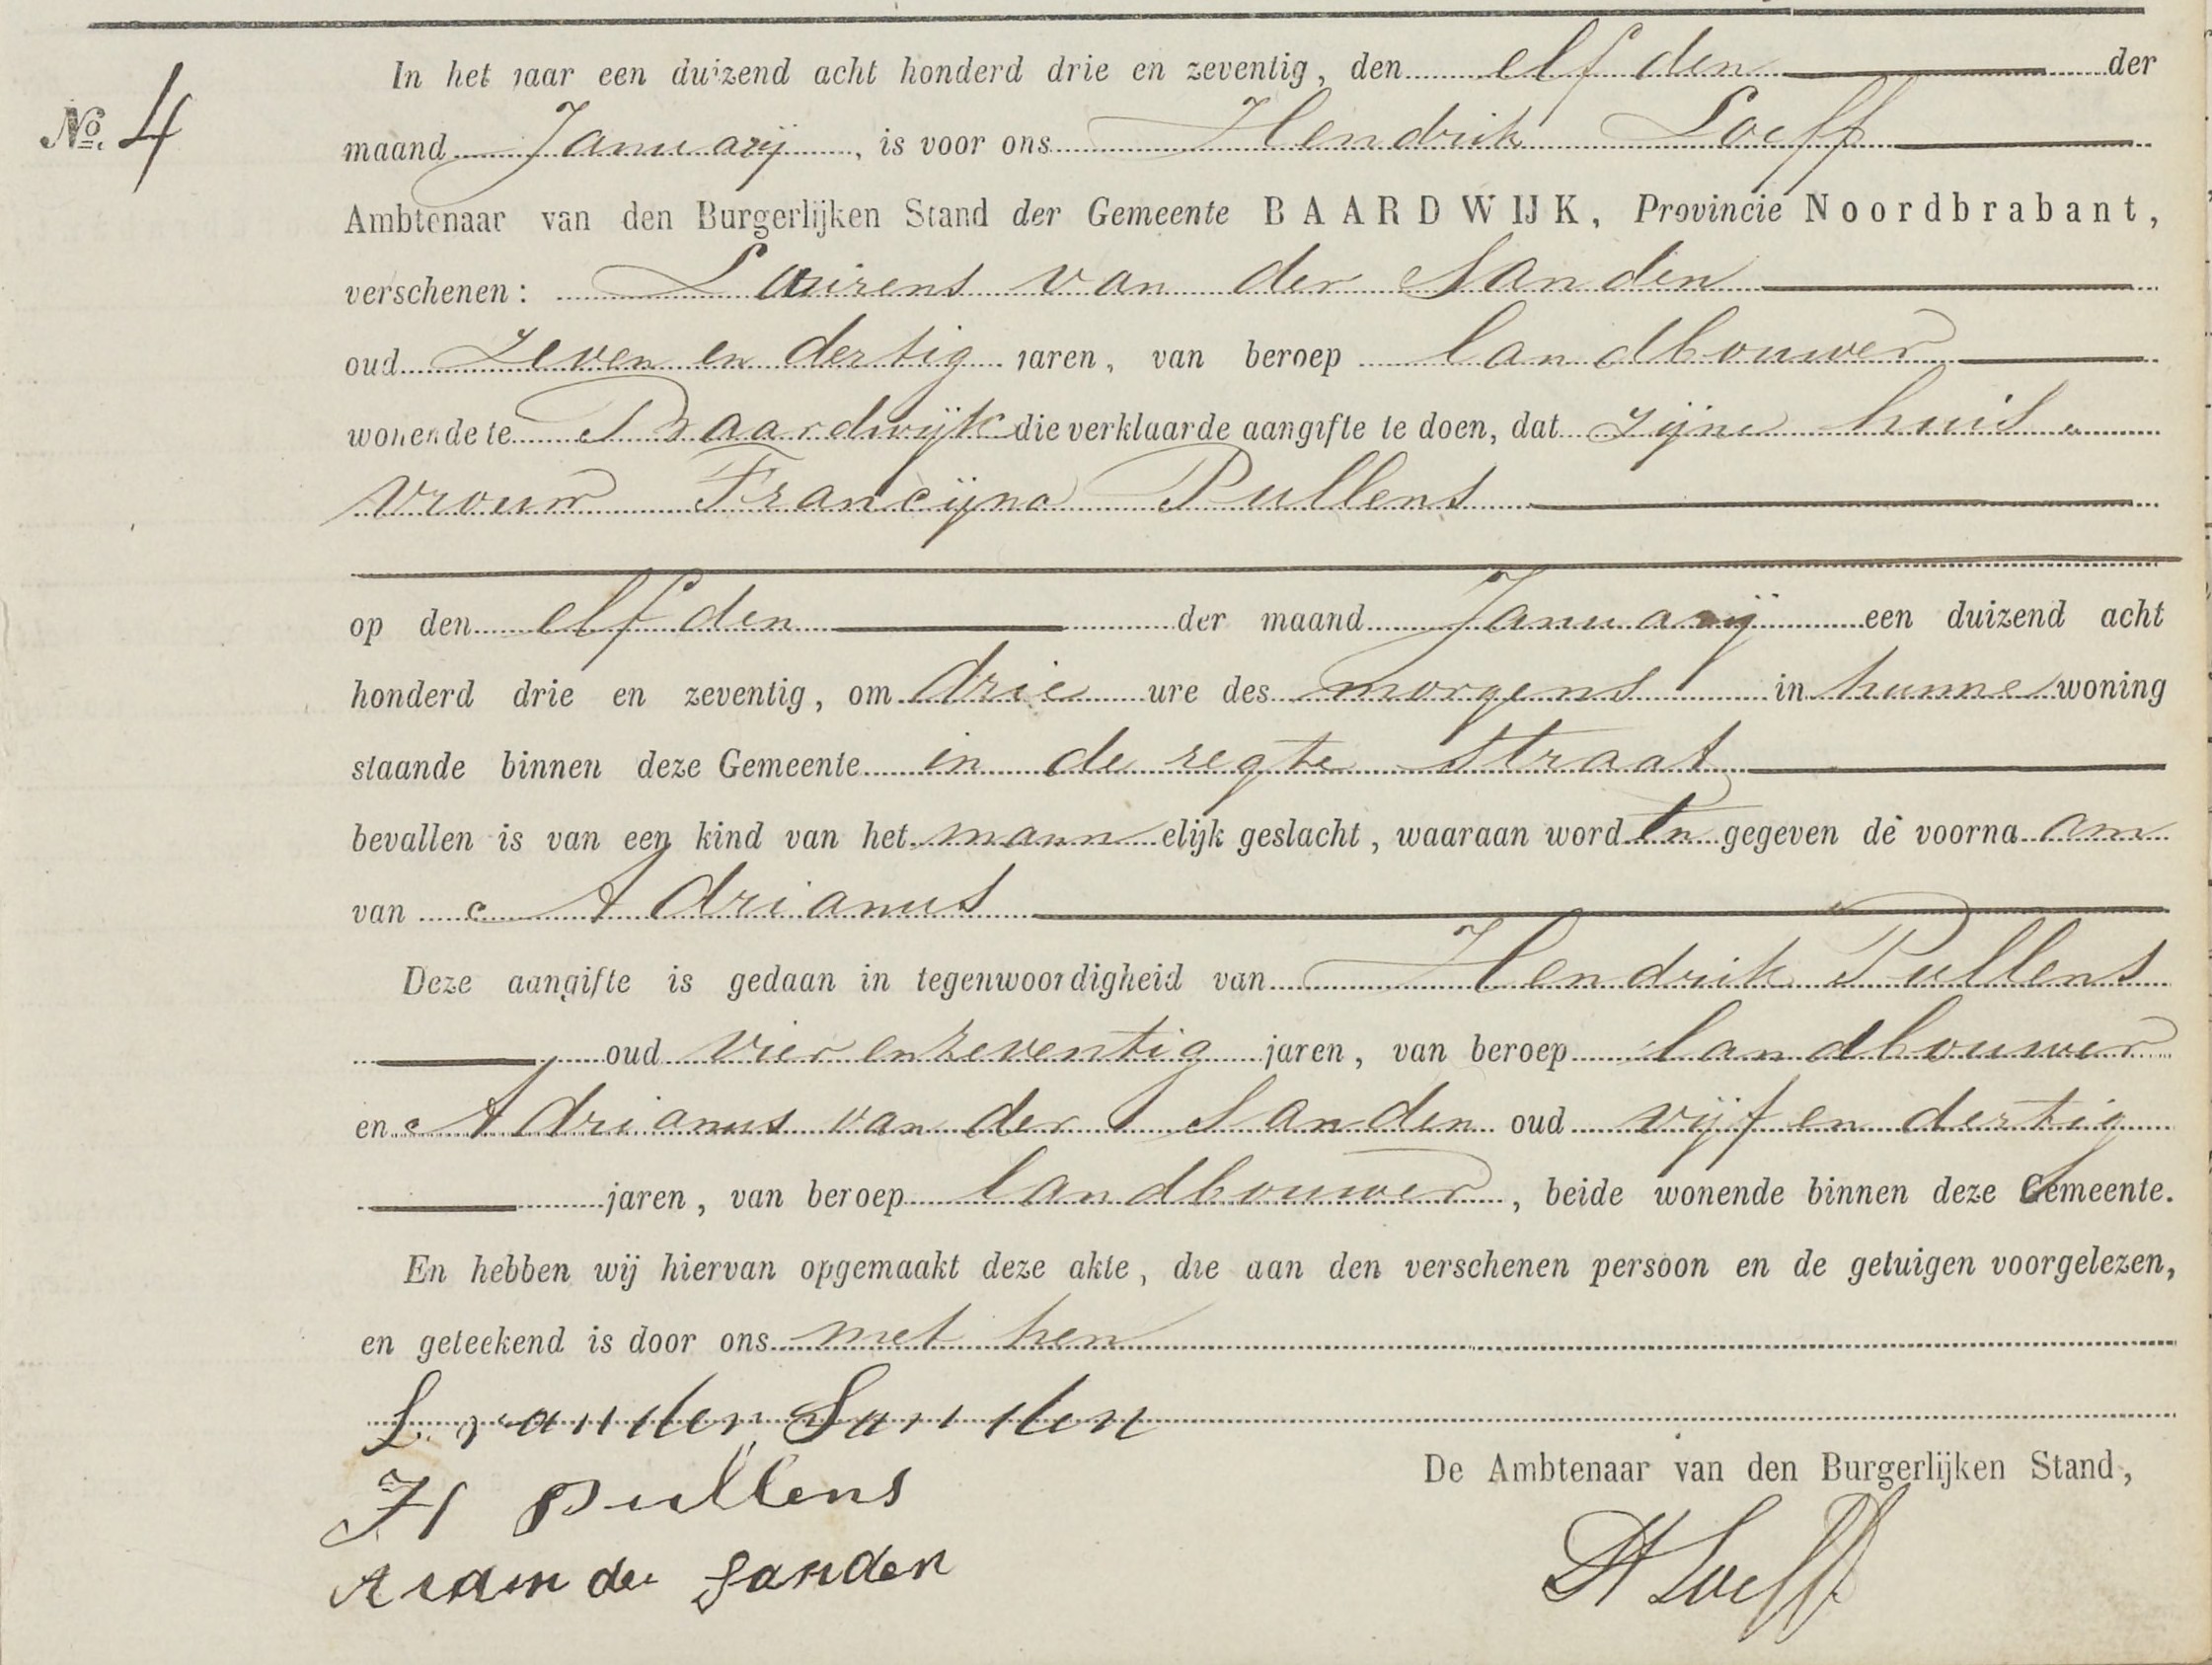 In het jaar een duizend acht honderd drie en zeventig, den elfden der
No. 4
maand Januarij, is voor ons Hendrik Loeff
Ambtenaar van den Burgerlijken Stand der Gemeente BAARDWIJK, Provincie Noordbrabant,
verschenen: Laurens van der Sanden
oud zeven en dertig jaren, van beroep landbouwer
wonende te Baardwijk die verklaarde aangifte te doen, dat zijne huis
vrouw Francijna Pullens
op den elfden der maand Januarij een duizend acht
honderd drie en zeventig, om drie ure des morgens in hunne woning
staande binnen deze Gemeente in de regte straat
bevallen is van een kind van het mannelijk geslacht, waaraan worden gegeven de voornaam
van Adrianus
Deze aangifte is gedaan in tegenwoordigheid van Hendrik Pullens
oud vier en zeventig jaren, van beroep landbouwer
en Adrianus van der Sanden oud vijf en dertig
jaren, van beroep landbouwer, beide wonende binnen deze Gemeente.
En hebben wij hiervan opgemaakt deze akte, die aan den verschenen persoon en de getuigen voorgelezen,
en geteekend is door ons met hen
L. van der Sanden
De Ambtenaar van den Burgerlijken Stand,
H Pullens
H Loeff
A van der Sanden